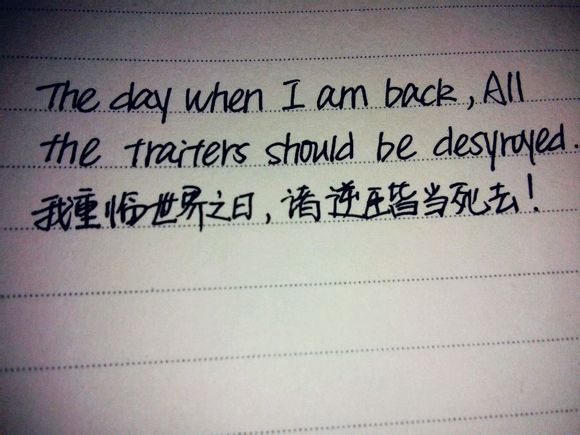 The day when I am back, All
the traiters should be desyroyed.
我重临世界之日，诸逆王皆当死去！